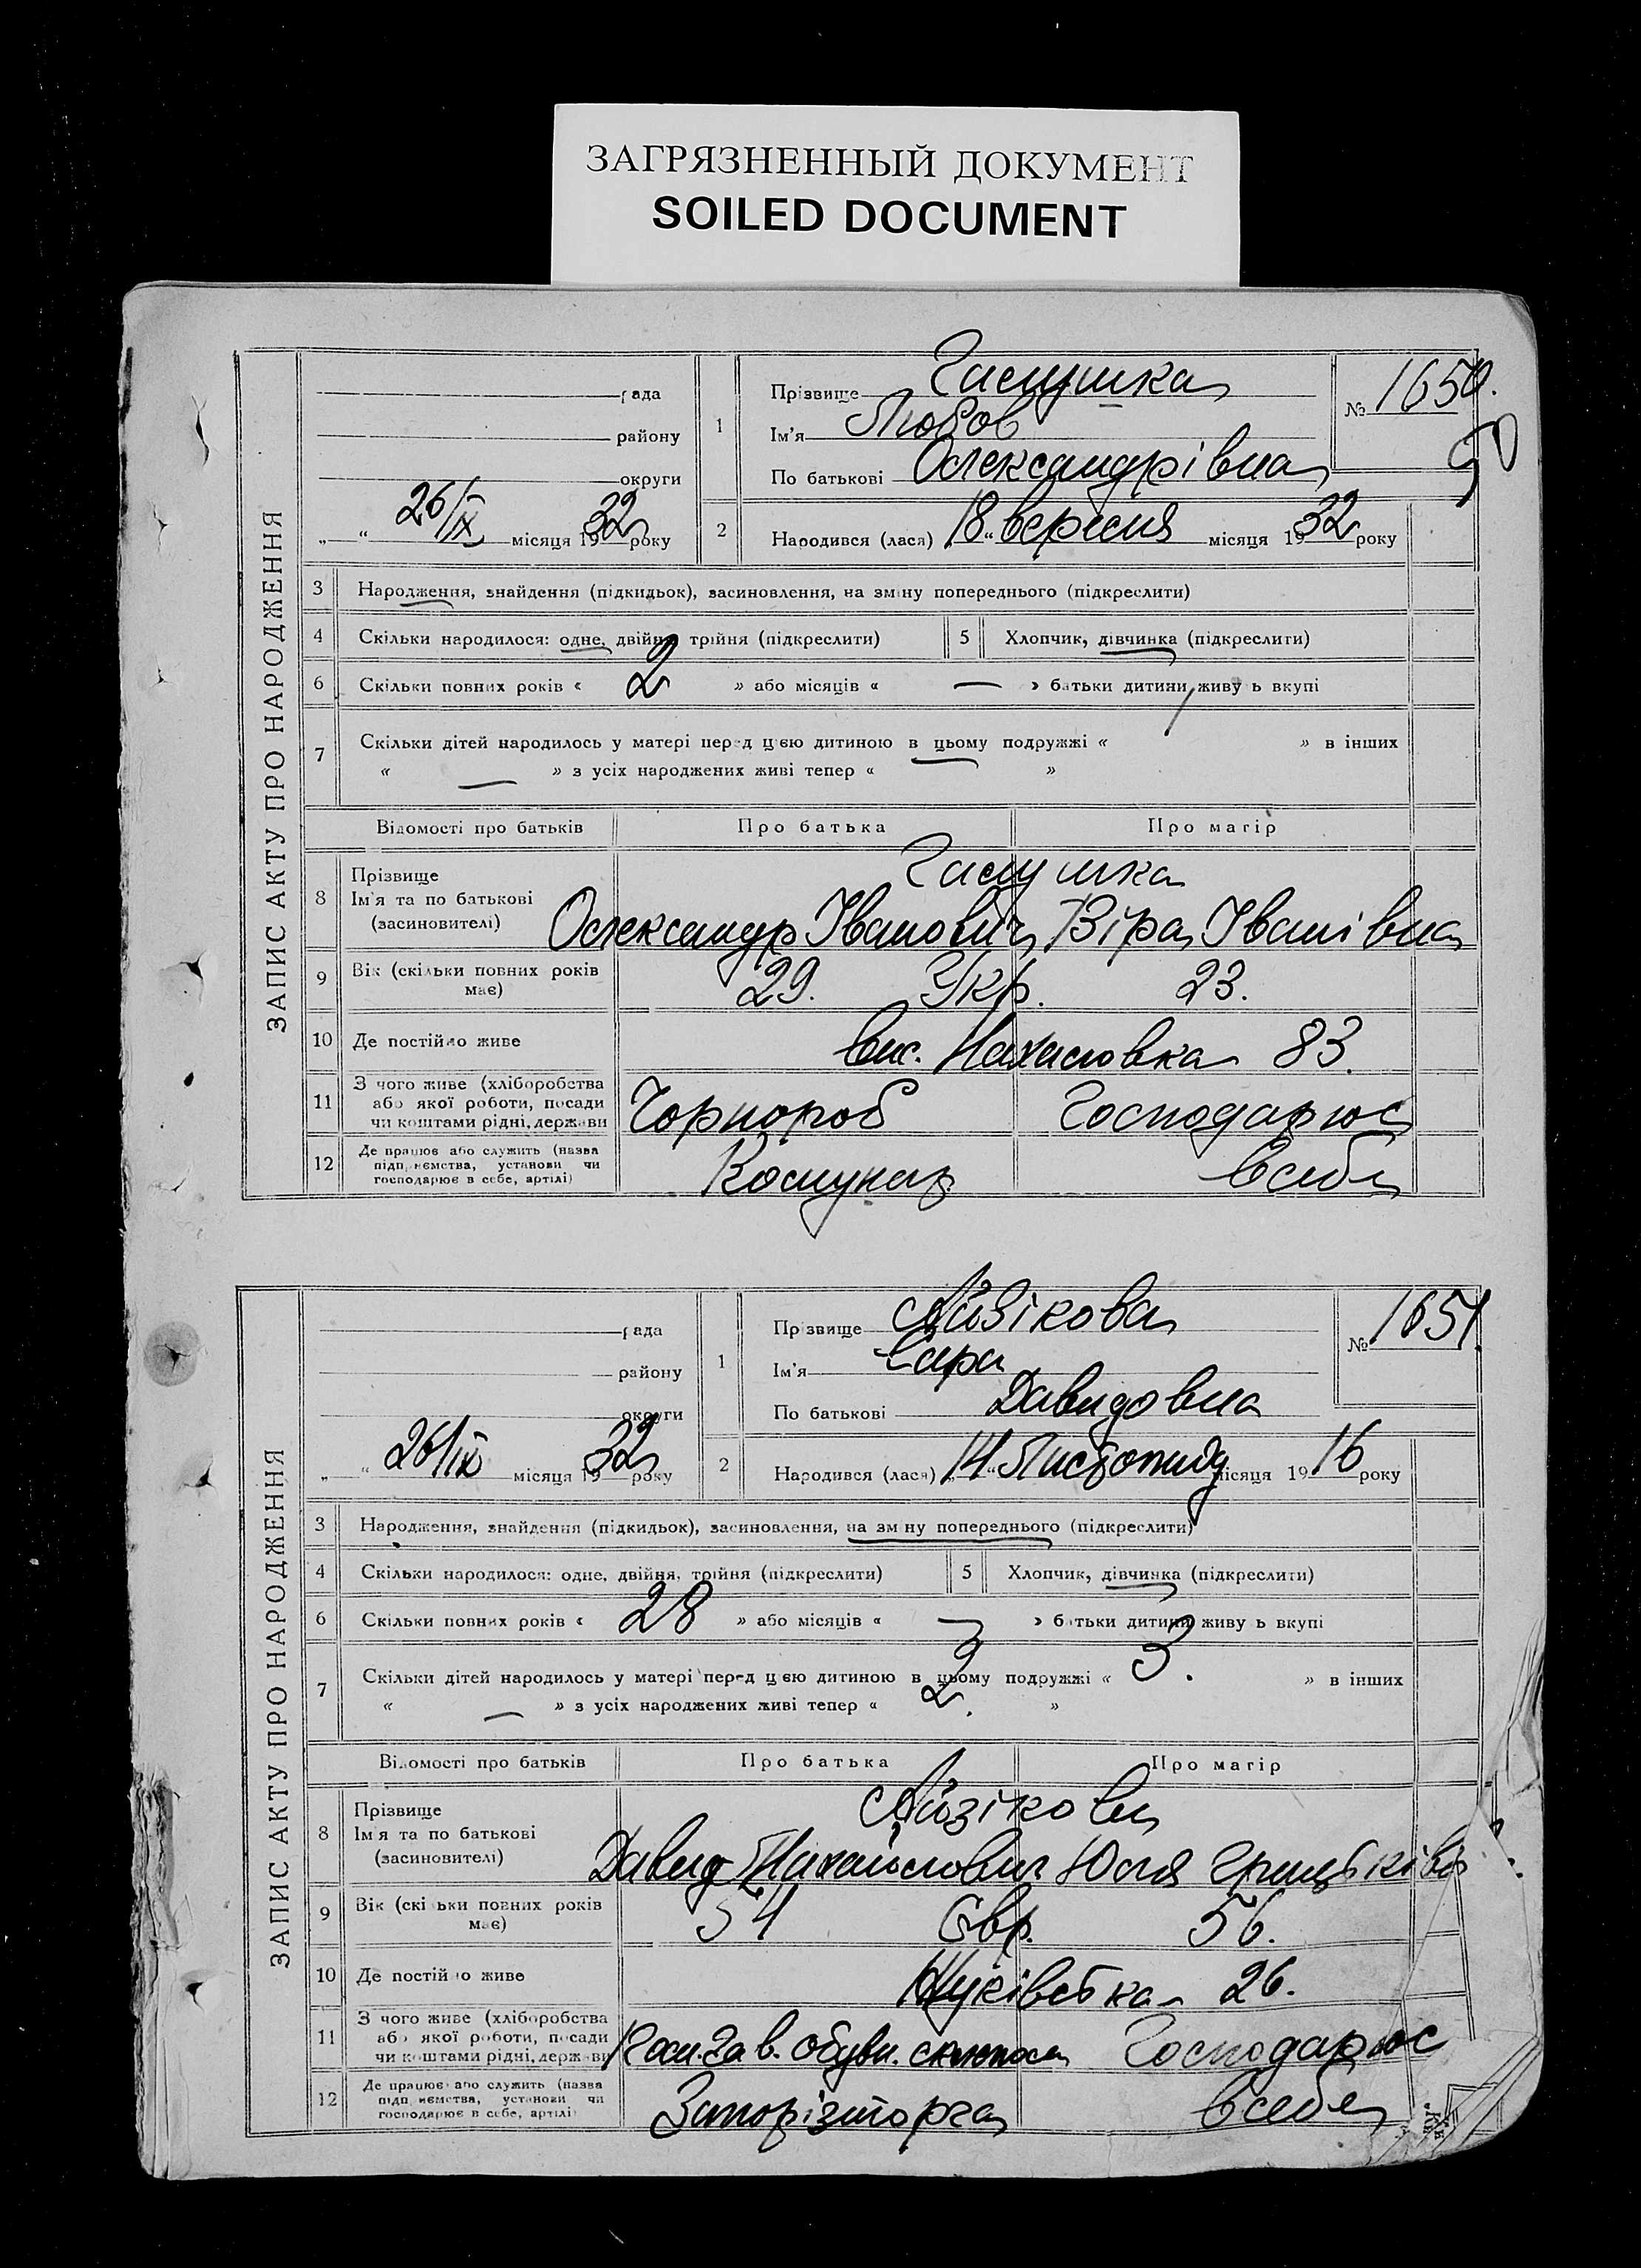 ЗАГРЯЗНЕННЫЙ ДОКУМЕНТ
SOILED DOCUMENT
ЗАПИС АКТУ ПРО НАРОДЖЕННЯ
рада
району
округи
„ “ 26/IX місяця 1932 року
1
Прізвище
Ім'я Любов
По батькові Олександрівна
№ 1650.
2
Народився (лася) „18“ вересня місяця 1932 року
3 Народження, знайдення (підкидьок), засиновлення, на зміну попереднього (підкреслити)
4 Скільки народилося: одне, двійня, трійня (підкреслити) 5 Хлопчик, дівчинка (підкреслити)
6 Скільки повних років « 2 » або місяців « — » батьки дитини живуть вкупі
7 Скільки дітей народилось у матері перед цією дитиною в цьому подружжі « » в інших
« — » з усіх народжених живі тепер « »
Відомості про батьків Про батька Про матір
8 Прізвище
Ім'я та по батькові
(засиновителі)
Олександр Іванович Віра Іванівна
9 Вік (скільки повних років має) 29. Укр. 23.
10 Де постійно живе вис. 83.
11 З чого живе (хліборобства
або якої роботи, посади
чи коштами рідні, держави
Чорнороб Господарює
12 Де працює або служить (назва
підприємства, установи чи
господарює в себе, артілі)
Комунар в себе
ЗАПИС АКТУ ПРО НАРОДЖЕННЯ
рада
району
округи
„ “ 26/IX місяця 1932 року
1
Прізвище Айзікова
Ім'я Сара
По батькові Давидовна
№ 1651
2
Народився (лася) „14“ Листопаду місяця 1916 року
3 Народження, знайдення (підкидьок), засиновлення, на зміну попереднього (підкреслити)
4 Скільки народилося: одне, двійня, трійня (підкреслити) 5 Хлопчик, дівчинка (підкреслити)
6 Скільки повних років « 28 » або місяців « — » батьки дитини живуть вкупі
7 Скільки дітей народилось у матері перед цією дитиною в цьому подружжі « 3. » в інших
« — » з усіх народжених живі тепер « 2. »
Відомості про батьків Про батька Про матір
8 Прізвище
Ім'я та по батькові
(засиновителі)
Айзікови
Давид Юля
9 Вік (скільки повних років має) 54 Євр. 56.
10 Де постійно живе 26.
11 З чого живе (хліборобства
або якої роботи, посади
чи коштами рідні, держави
зав. обувн. Господарює
12 Де працює або служить (назва
підприємства, установи чи
господарює в себе, артілі)
Запоріжторга в себе